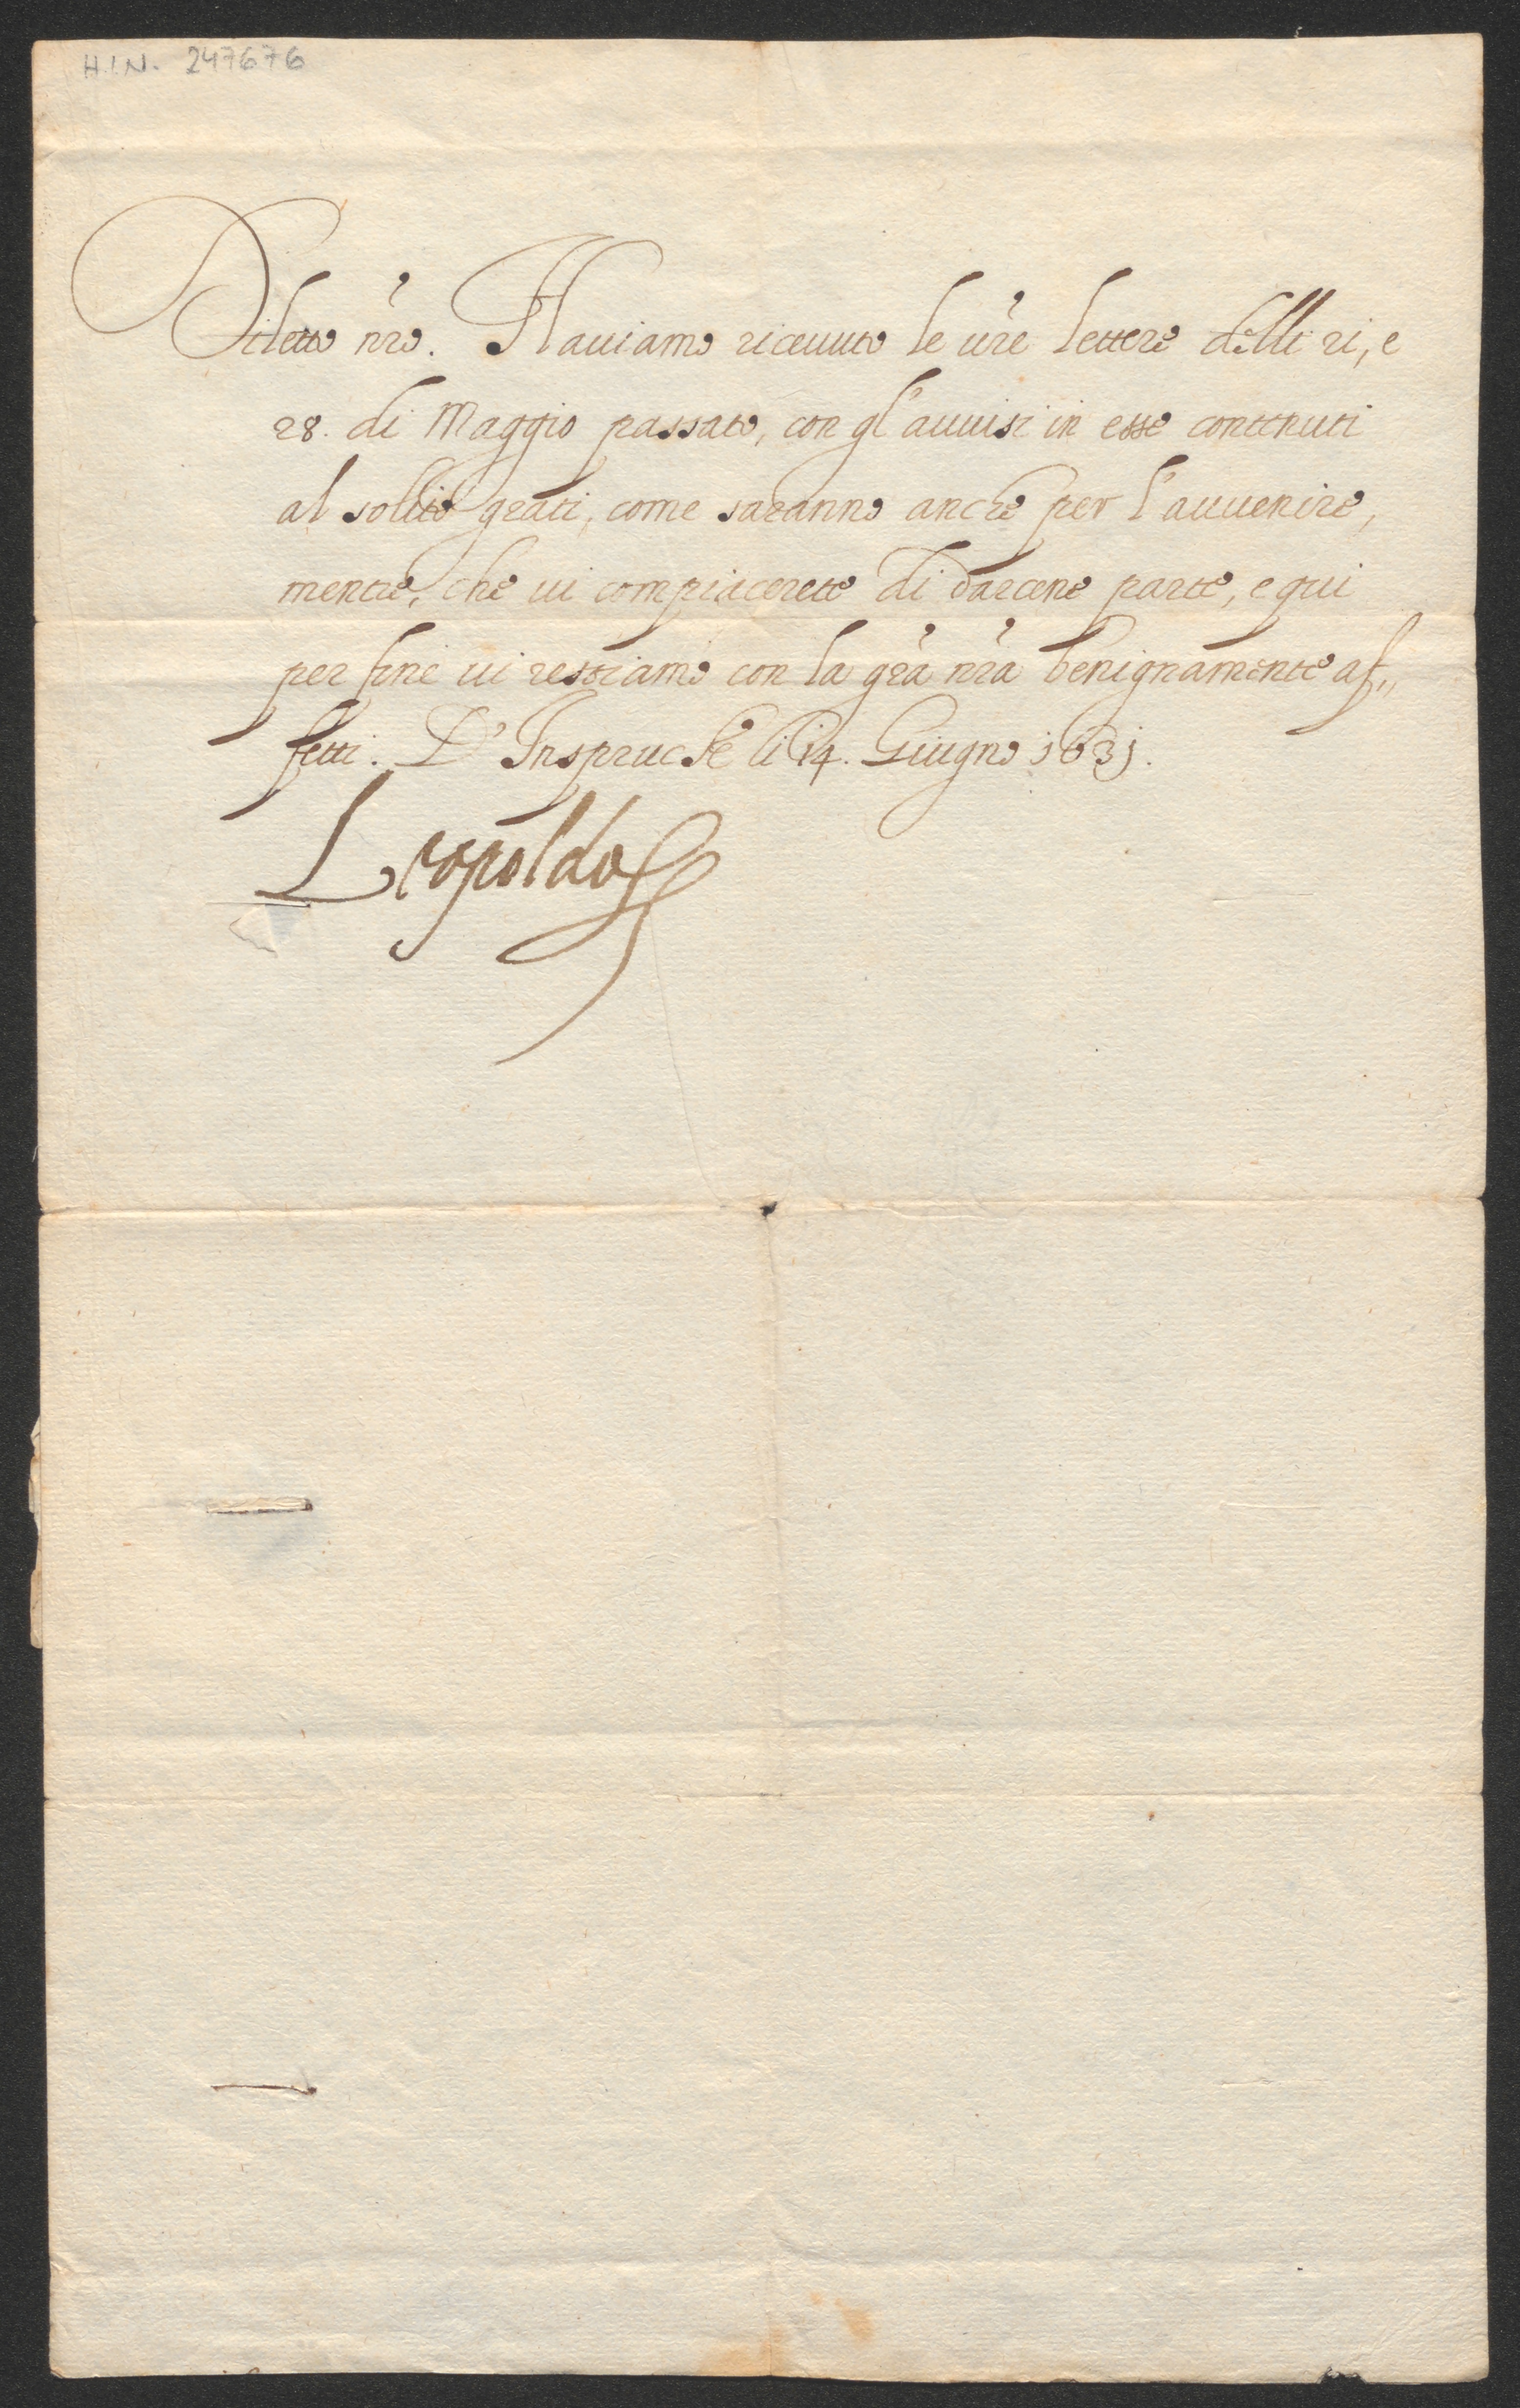 H.I.N. 247676
Diletto nro. Hauiamo riceuuto le ure lettere delli 21, e
28. di Maggio passato, con gl'auuisi in esse contenuti
al solito grati, come saranno anche per l'auuenire,
mentre, che ui compiacerete di darcene parte, e qui
per fine ui restiamo con la gra nra benignamente af„
fetti. D'Inspruck li 14. Giugno 1631.
Leopoldo